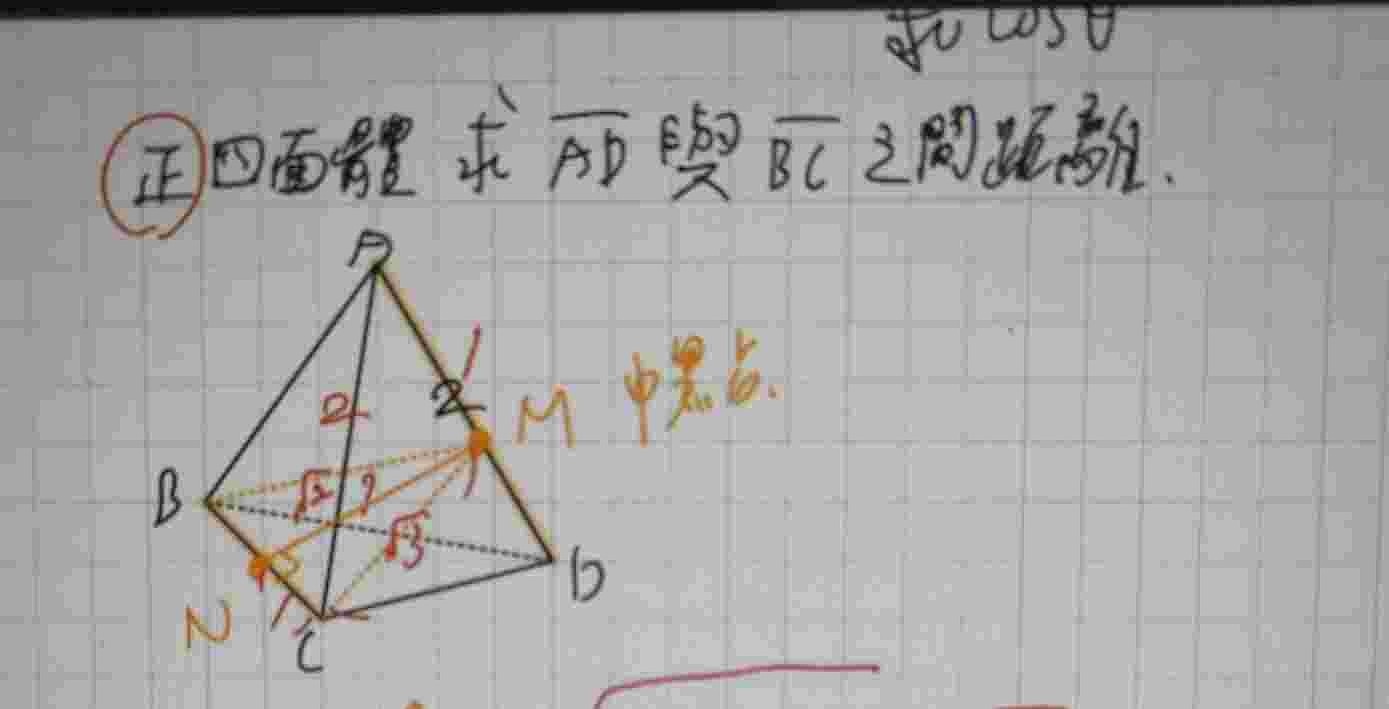 求 cosθ
正四面體 求 AD 與 BC 之間距離.
A
1
2 2 M 中點.
B √3 ?
√3 1
D
N 1
C